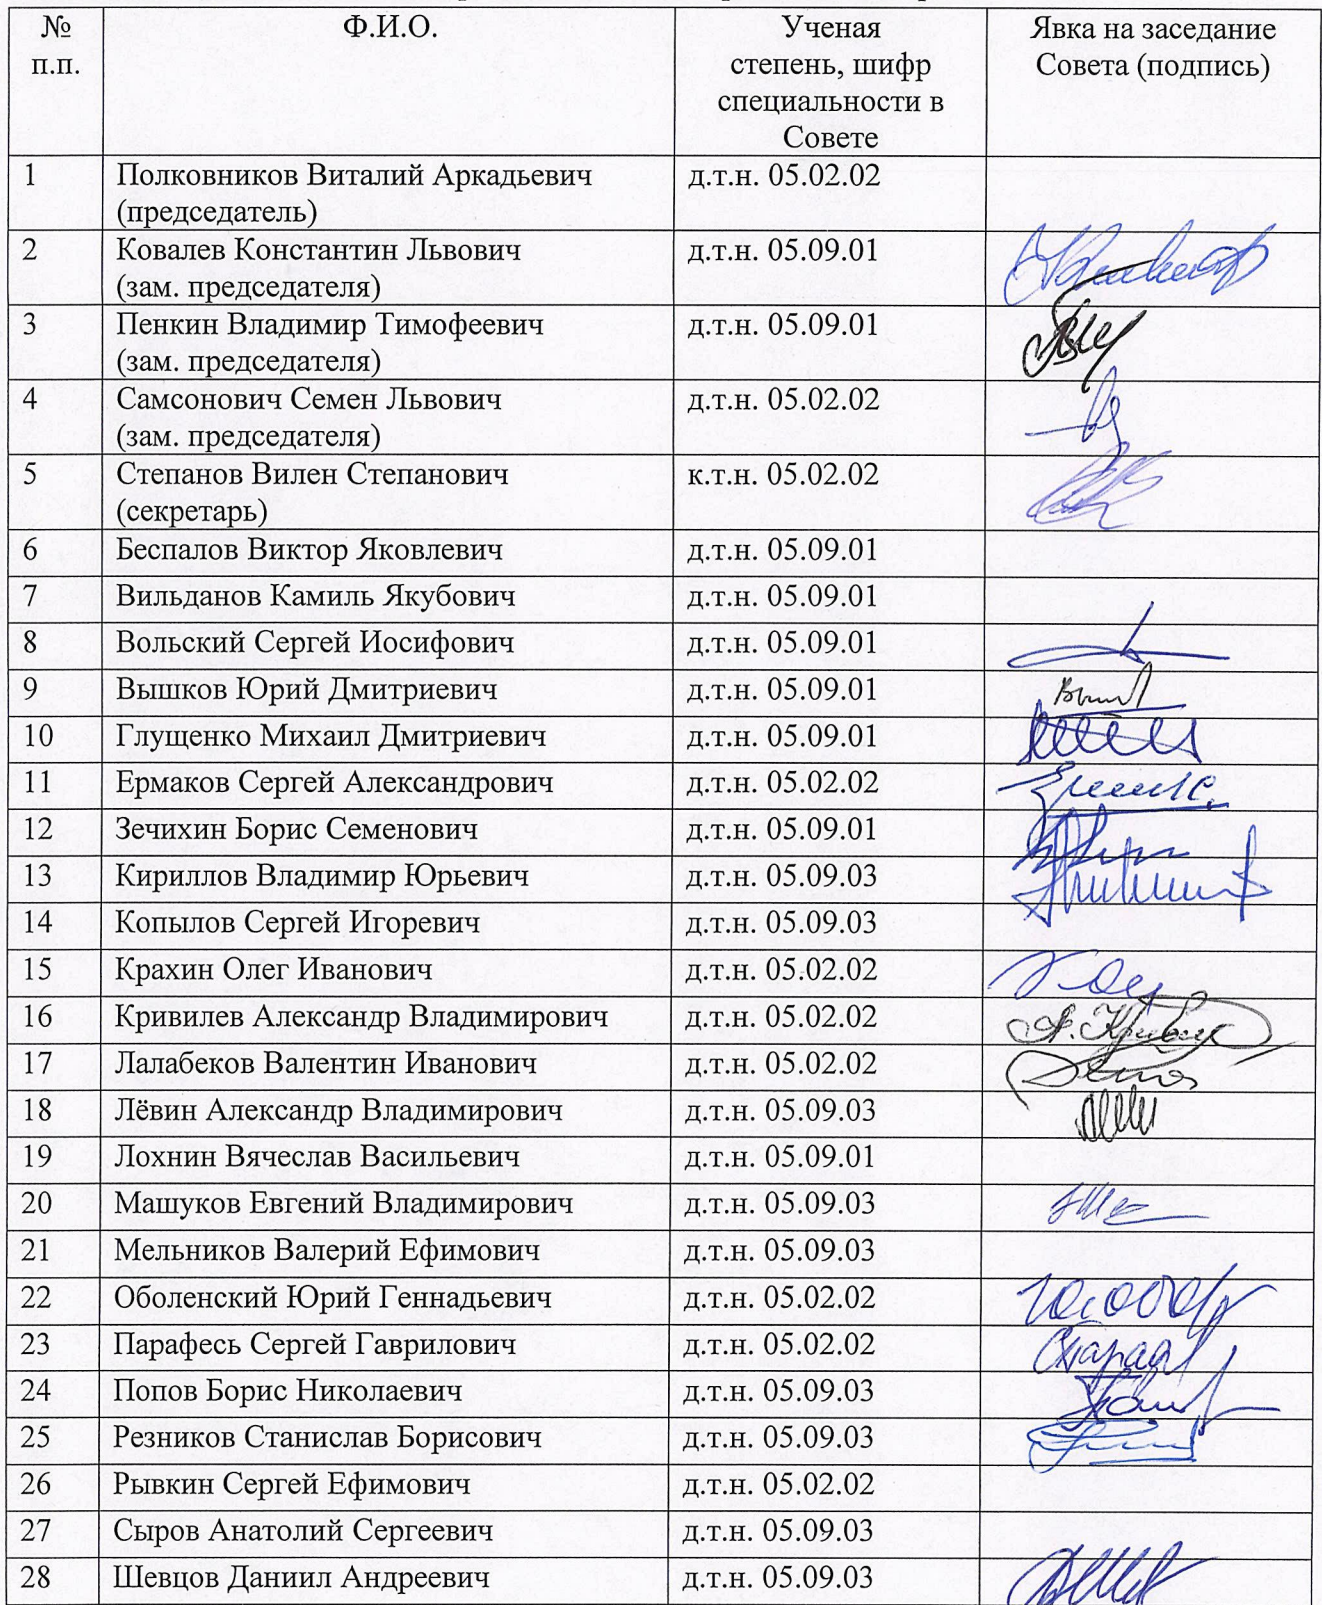 № Ф.И.О. Ученая Явка на заседание
п.п. степень, шифр Совета (подпись)
специальности в
Совете
1 Полковников Виталий Аркадьевич д.т.н. 05.02.02
(председатель)
2 Ковалев Константин Львович д.т.н. 05.09.01
(зам. председателя)
3 Пенкин Владимир Тимофеевич д.т.н. 05.09.01
(зам. председателя)
4 Самсонович Семен Львович д.т.н. 05.02.02
(зам. председателя)
5 Степанов Вилен Степанович к.т.н. 05.02.02
(секретарь)
6 Беспалов Виктор Яковлевич д.т.н. 05.09.01
7 Вильданов Камиль Якубович д.т.н. 05.09.01
8 Вольский Сергей Иосифович д.т.н. 05.09.01
9 Вышков Юрий Дмитриевич д.т.н. 05.09.01
10 Глущенко Михаил Дмитриевич д.т.н. 05.09.01
11 Ермаков Сергей Александрович д.т.н. 05.02.02
12 Зечихин Борис Семенович д.т.н. 05.09.01
13 Кириллов Владимир Юрьевич д.т.н. 05.09.03
14 Копылов Сергей Игоревич д.т.н. 05.09.03
15 Крахин Олег Иванович д.т.н. 05.02.02
16 Кривилев Александр Владимирович д.т.н. 05.02.02
17 Лалабеков Валентин Иванович д.т.н. 05.02.02
18 Лёвин Александр Владимирович д.т.н. 05.09.03
19 Лохнин Вячеслав Васильевич д.т.н. 05.09.01
20 Машуков Евгений Владимирович д.т.н. 05.09.03
21 Мельников Валерий Ефимович д.т.н. 05.09.03
22 Оболенский Юрий Геннадьевич д.т.н. 05.02.02
23 Парафесь Сергей Гаврилович д.т.н. 05.02.02
24 Попов Борис Николаевич д.т.н. 05.09.03
25 Резников Станислав Борисович д.т.н. 05.09.03
26 Рывкин Сергей Ефимович д.т.н. 05.02.02
27 Сыров Анатолий Сергеевич д.т.н. 05.09.03
28 Шевцов Даниил Андреевич д.т.н. 05.09.03